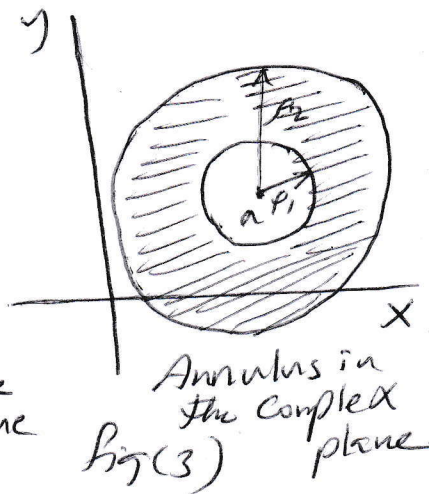 y
ρ2
a ρ1
X
Annulus in
the complex
plane
fig(3)